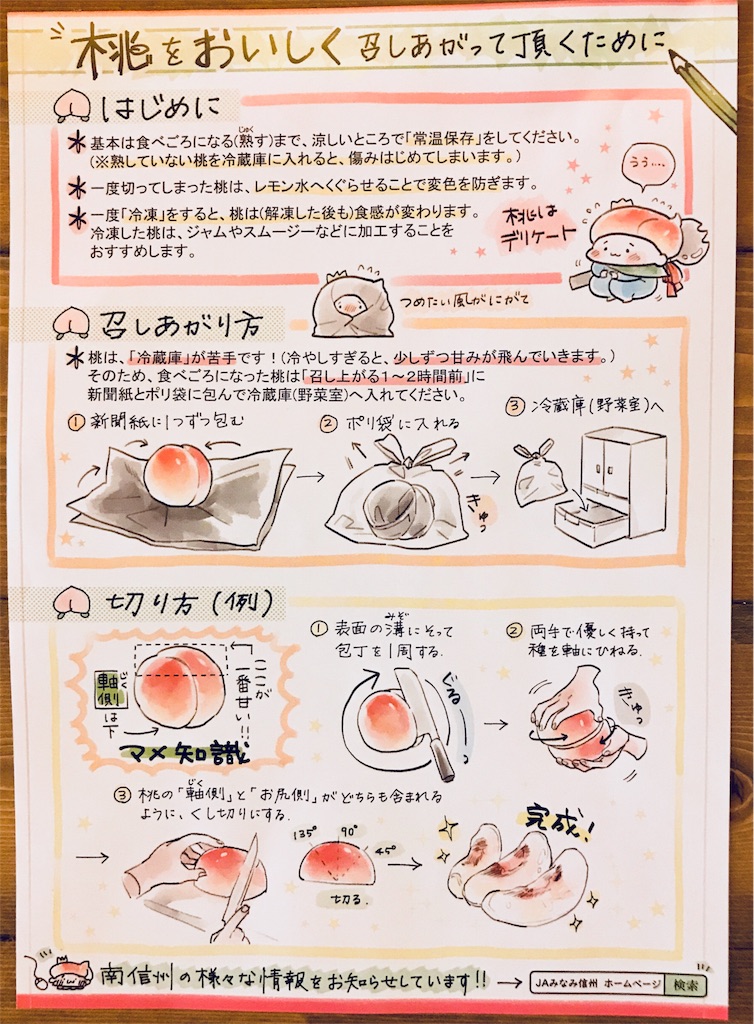 桃をおいしく召しあがって頂くために
はじめに
＊基本は食べごろになる(熟す)まで、涼しいところで「常温保存」をしてください。
じゅく
(※熟していない桃を冷蔵庫に入れると、傷みはじめてしまいます。)
＊一度切ってしまった桃は、レモン水へくぐらせることで変色を防ぎます。
＊一度「冷凍」をすると、桃は(解凍した後も)食感が変わります。
冷凍した桃は、ジャムやスムージーなどに加工することを
おすすめします。
うぅ….
桃は
デリケート
つめたい風がにがて
召しあがり方
＊桃は、「冷蔵庫」が苦手です！(冷やしすぎると、少しずつ甘みが飛んでいきます。)
そのため、食べごろになった桃は「召し上がる1～2時間前」に
新聞紙とポリ袋に包んで冷蔵庫(野菜室)へ入れてください。
① 新聞紙に1つずつ包む
② ポリ袋に入れる
きゅっ
③ 冷蔵庫(野菜室)へ
切り方(例)
ここが
一番甘い!!
じく
軸側
は
下
マメ知識
① 表面の溝にそって
みぞ
包丁を1周する.
ぐるーっ
② 両手で優しく持って
種を軸にひねる.
きゅっ
③ 桃の「軸側」と「お尻側」がどちらも含まれる
じく
ように、くし切りにする.
135° 90° 45°
切る.
完成!
南信州の様々な情報をお知らせしています!!→ JAみなみ信州 ホームページ 検索